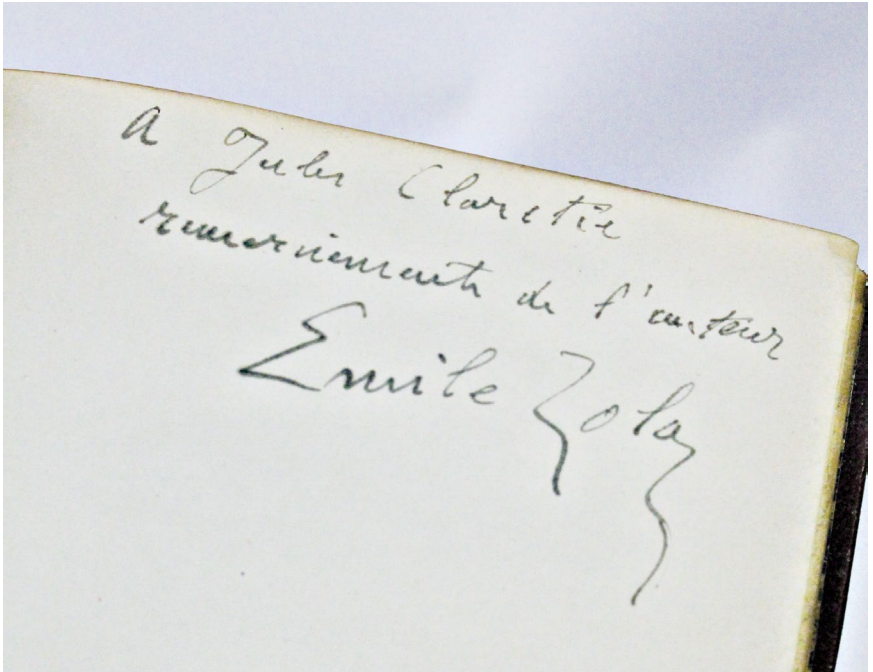 A Jules Claretie
remerciements de l'auteur
Emile Zola